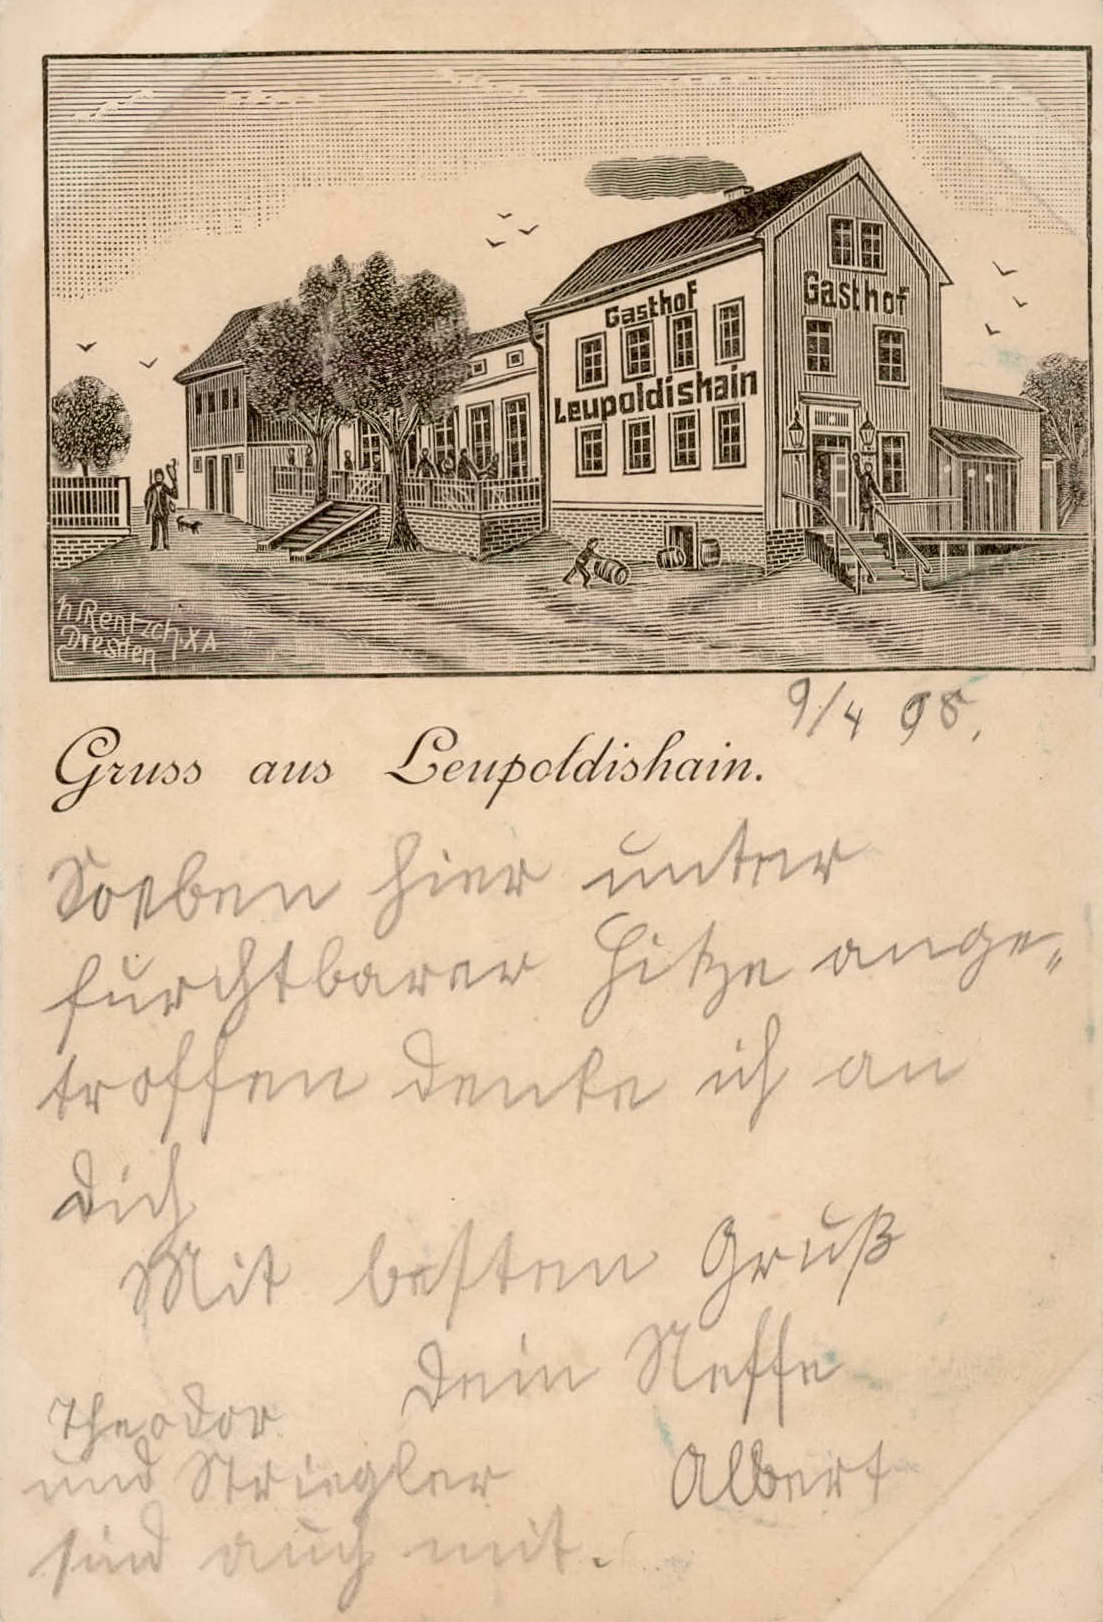 Gasthof
Leupoldishain
Gasthof
h. Rentzch, X A
Dresden
9/4 98.
Gruss aus Leupoldishain.
Soeben hier unter
furchtbarer Hitze ange„
troffen denke ich an
Dich
Mit besten Gruß
Dein Neffe
Albert
Theodor
und Striegler
sind auch mit.